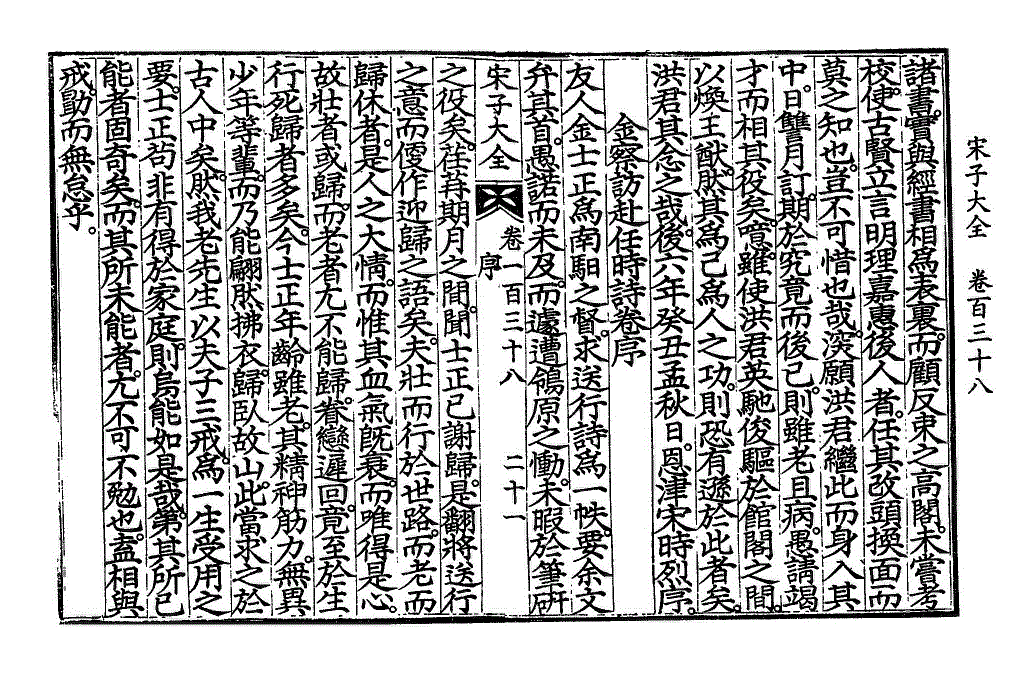 宋子大全　卷百三十八
諸書。嘗與經書相爲表裏。而顧反束之高閣。未嘗考
校。使古賢立言明理嘉惠後人者。任其改頭換面而
莫之知也。豈不可惜也哉。深願洪君繼此而身入其
中。日讐月訂。期於究竟而後已。則雖老且病。愚請竭
才而相其役矣。噫。雖使洪君英馳俊驅於館閣之間。
以煥王猷。然其爲己爲人之功。則恐有遜於此者矣。
洪君其念之哉。後六年癸丑孟秋日。恩津宋時烈序。
金察訪赴任時詩卷序
友人金士正爲南馹之督。求送行詩爲一帙。要余文
弁其首。愚諾而未及。而遽遭鴒原之慟。未暇於筆硏
宋子大全　卷一百三十八　序　二十一
之役矣。荏苒期月之間。聞士正已謝歸。是翻將送行
之意而優作迎歸之語矣。夫壯而行於世路。而老而
歸休者。是人之大情。而惟其血氣旣衰。而唯得是心。
故壯者或歸。而老者尤不能歸。眷戀遲回。竟至於生
行死歸者多矣。今士正年齡雖老。其精神筋力。無異
少年等輩。而乃能翩然拂衣。歸臥故山。此當求之於
古人中矣。然我老先生以夫子三戒。爲一生受用之
要。士正苟非有得於家庭。則烏能如是哉。第其所已
能者固奇矣。而其所未能者。尤不可不勉也。盍相與
戒。勖而無怠乎。